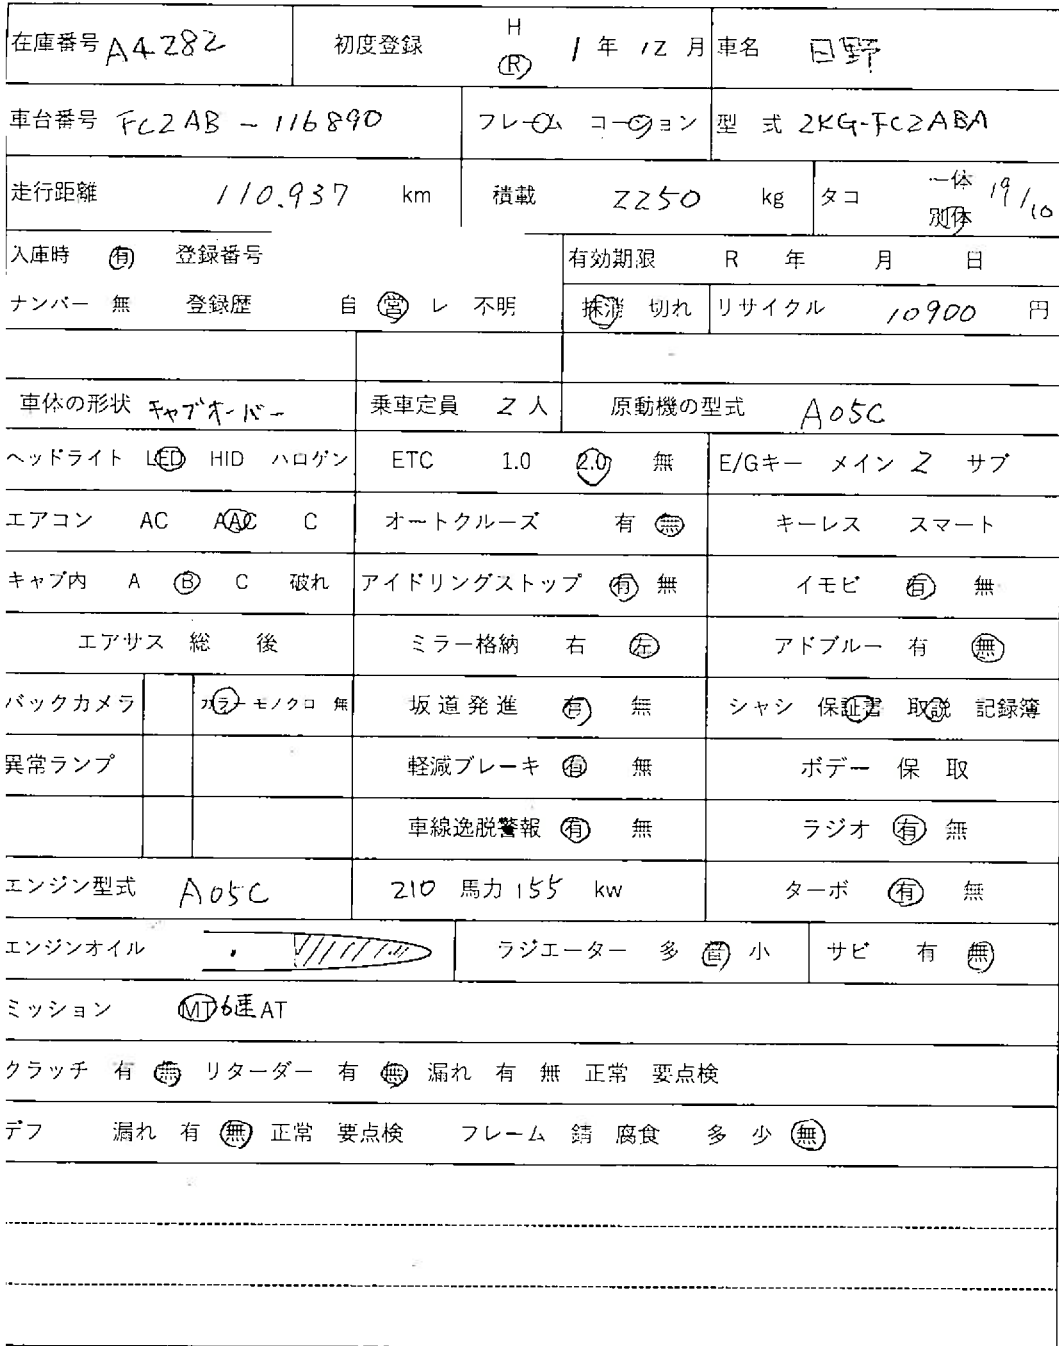 在庫番号 A4282 初度登録 H Ⓡ 1 年 12 月 車名 日野
車台番号 FC2AB - 116890 フレーム コーション 型 式 2KG-FC2ABA
走行距離 110.937 km 積載 2250 kg タコ 一体 別体 19/10
入庫時 有 登録番号 有効期限 R 年 月 日
ナンバー 無 登録歴 自 営 レ 不明 抹消 切れ リサイクル 10900 円
車体の形状 キャブオーバー 乗車定員 2 人 原動機の型式 A05C
ヘッドライト LED HID ハロゲン ETC 1.0 2.0 無 E/Gキー メイン 2 サブ
エアコン AC AAC C オートクルーズ 有 無 キーレス スマート
キャブ内 A B C 破れ アイドリングストップ 有 無 イモビ 有 無
エアサス 総 後 ミラー格納 右 左 アドブルー 有 無
バックカメラ カラー モノクロ 無 坂道発進 有 無 シャシ 保証書 取説 記録簿
異常ランプ 軽減ブレーキ 有 無 ボデー 保 取
車線逸脱警報 有 無 ラジオ 有 無
エンジン型式 A05C 210 馬力 155 kw ターボ 有 無
エンジンオイル ラジエーター 多 小 サビ 有 無
ミッション MT 6速 AT
クラッチ 有 無 リターダー 有 無 漏れ 有 無 正常 要点検
デフ 漏れ 有 無 正常 要点検 フレーム 錆 腐食 多 少 無